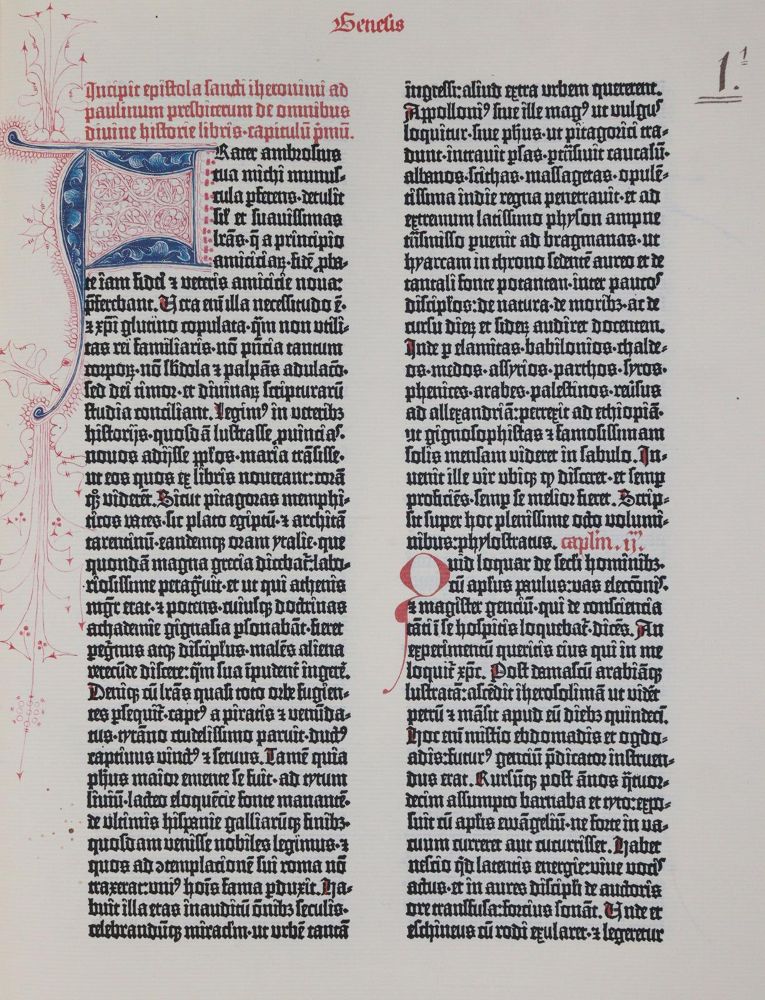 Genesis
1. 1
Incipit epistola sancti iheronimi ad
paulinum presbiterum de omnibus
divine historie libris·capitulũ p̃mũ.
FRater ambrosius
tua michi munus⸗
cula ꝑferens·detulit
sił et suavissimas
lr̃as·q̃ a principio
amiciciaꝝ·fidẽ ꝓba⸗
te iam fidei ⁊ veteris amicicie noua:
p̃ferebant. Uera eni̅ illa necessitudo ẽ·
⁊ xp̃i glutino copulata·q̃m non utili⸗
tas rei familiaris·nõ pñcia tantum
corpoꝝ·nõ s̃bdola ⁊ palpãs adulaćo·
sed dei timor·et diuinaꝝ scripturarũ
studia conciliant. Legim⁹ in ueterib⁊
historijs·quosdã lustrasse ꝓuincias·
nouos adijsse pp̃los·maria trãsisse·
ut eos quos ex libris nouerant: corã
q̃ꝫ viderẽt. Sicut pitagoras memphi⸗
ticos vates·sic plato egiptũ·⁊ architã
tarentinũ·eandemqꝫ oram ytalie·que
quondã magna grecia dicebat̃: labo⸗
riosissime peragũit·et ut qui athenis
mgr̃ erat·⁊ potens·cuiusqꝫ doctrinas
achademie gignasia ꝑsonabãt·fieret
peg̃nus atqꝫ discipulus·malẽs aliena
verecũde discere: q̃m sua ĩpudent̃ ingerẽ.
Deniqꝫ cũ lr̃as quasi toto orbe fugien⸗
tes ꝑsequit̃·capt⁹ a piratis ⁊ venũda⸗
tus·tyrãno crudelissimo paruit·duct⁹
captiuus vinct⁹ ⁊ seruus. Tamẽ quia
ph̃us maior emente se fuit·ad tytum
liuiũ·lacteo eloquẽcie fonte manantẽ·
de vltimis hispanie galliarũqꝫ finib⁊·
quosdam venisse nobiles legimus·⁊
quos ad ↄtemplacionẽ sui roma nõ
traxerat: vni⁹ hoĩs fama ꝑduxit. Ha⸗
buit illa etas inauditũ õnib⁊ seculis·
celebrandũqꝫ miraclm̃·ut urbẽ tantã
ingressi: aliud extra urbem quererent.
Appolloni⁹ siue ille mag⁹ ut vulgus
loquitur·siue ph̃us·ut pitagorici tra⸗
dunt·intrauit ꝑsas·ptrãsiuit caucasũ·
albanos·scithas·massagetas·opulẽ⸗
tissima indie regna penetrauit·et ad
extremum latissimo physon ampne
trãsmisso puenit ad bragmanas·ut
hyarcam in throno sedentẽ aureo et de
tantali fonte potantem·inter paucos
discip̃los: de natura·de morib⁊·ac de
cursu dieꝝ et sideꝝ audiret docentem.
Inde ꝑ elamitas·babilonios·chalde⸗
os·medos·assyrios·parthos·syros·
phenices·arabes·palestinos·reũsus
ad allexandriã: perrexit ad ethiopiã·
ut gignosophistas ⁊ famosissimam
solis mensam videret in sabulo. In⸗
uenit ille vir vbiqꝫ qd̃ disceret·et semꝑ
proficiẽs·semꝑ se melior fieret. Scrip⸗
sit super hoc plenissime octo volumi⸗
nibus: phylostratus. capłm. ij.
Quid loquar de secl̃i hominib⁊·
cũ apl̃us paulus: vas elecćonis·
⁊ magister genciũ·qui de consciencia
tãti ĩ se hospicis loquebat̃·dicẽs. An
experimentũ queritis eius qui in me
loquit̃ xp̃c. Post damascũ arabiãqꝫ
lustratã: ascẽdit iherosolimã ut vidẽt
petrũ ⁊ mãsit apud eũ dieb⁊ quindecĩ.
Hoc eni̅ misterio ebdomadis et ogdo⸗
adis: futur⁹ genciũ p̃dicator instruen⸗
dus erat. Rursũqꝫ post ãnos q̃tuor⸗
decim assumpto barnaba et tyto: expo⸗
suit cũ apl̃is ewãgeliũ·ne forte in va⸗
cuum curreret aut cucurrisset. Habet
nescio qd̃ latentis energie: viue vocis
actus·et in aures discipli de auctoris
ore transfusa: forcius sonãt. Unde et
eschineus cũ rodi exularet·⁊ legeretur